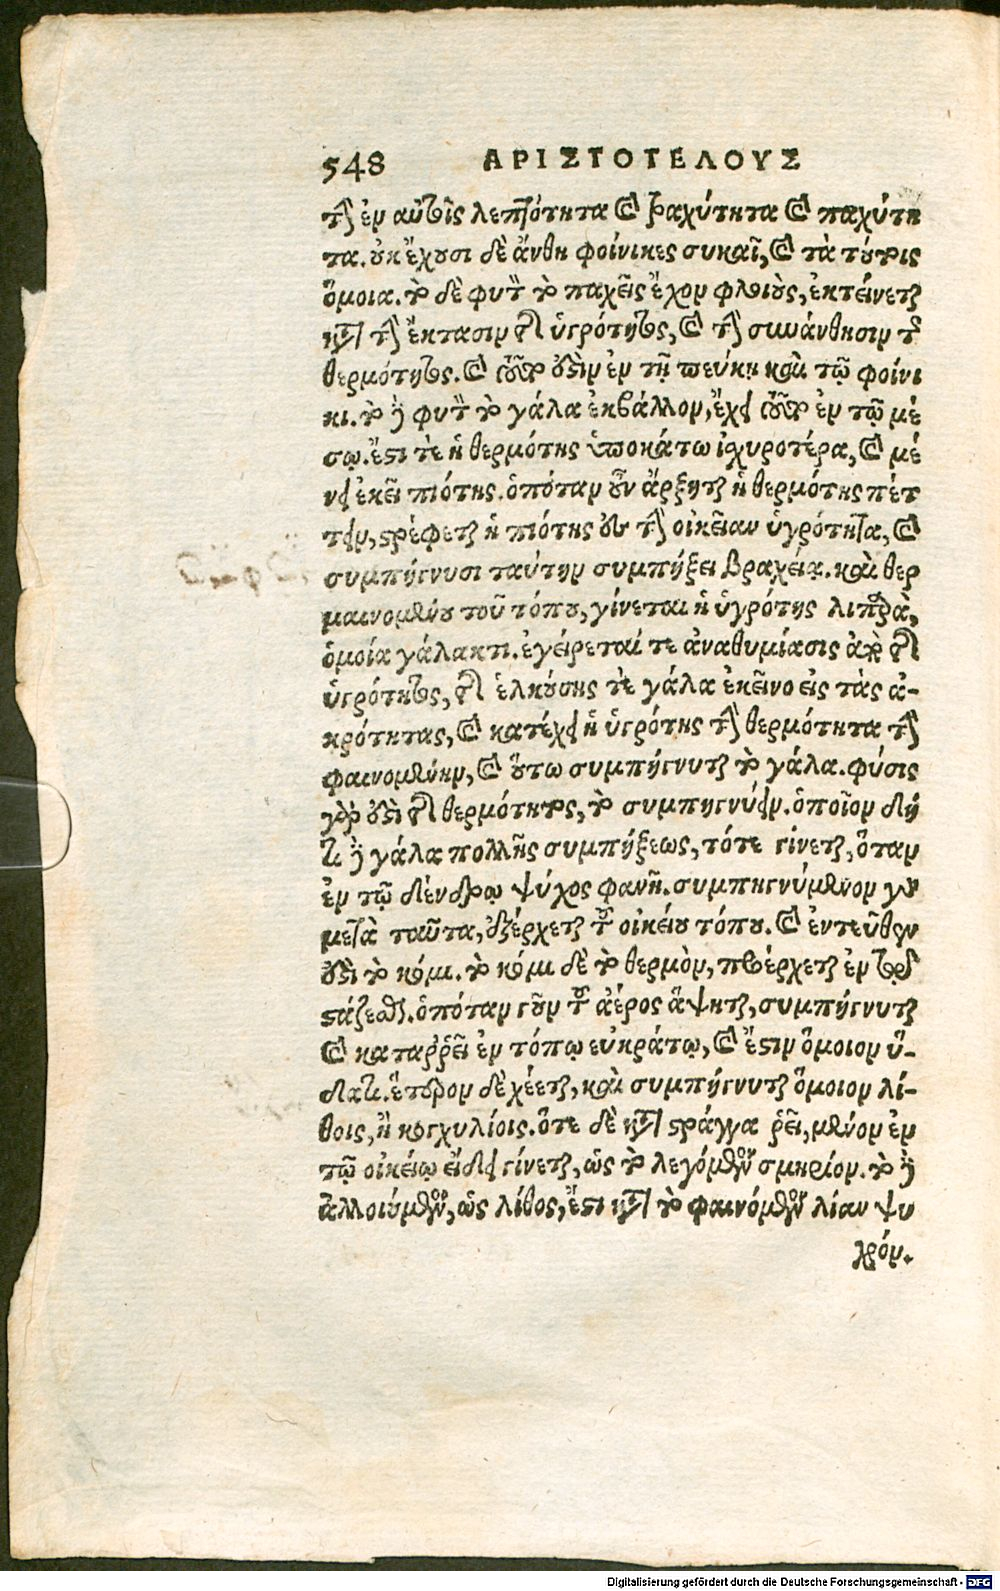 548 ΑΡΙΣΤΟΤΕΛΟΥΣ
τὴν ἐν αὐτοῖς λεπτότητα καὶ τραχύτητα καὶ παχύτη
τα. οὐκ ἔχουσι δὲ ἄνθη φοίνικες συκαῖ, καὶ τὰ τούτοις
ὅμοια. τὸ δὲ φυτὸν τὸ παχεῖς ἔχον φλοιοὺς, ἐκτείνεται
κατὰ τὴν ἔκτασιν τῆς ὑγρότητος, καὶ τὴν συνάνθησιν τῆς
θερμότητος. καὶ τοῦτο οὐδὲν ἐν τῇ πεύκῃ καὶ τῷ φοίνι
κι. τὸ δὲ φυτὸν τὸ γάλα ἐκβάλλον, ἔχει τοῦτο ἐν τῷ μέ
σῳ. ἔστι τε ἡ θερμότης ὑποκάτω ἰχυροτέρα, καὶ μέ
νει ἐκεῖ πιότης. ὁπόταν οὖν ἄρξηται ἡ θερμότης πέτ
τειν, στρέφεται ἡ πιότης εἰς τὴν οἰκείαν ὑγρότητα, καὶ
συμπήγνυσι ταύτην συμπήξει βραχείᾳ. καὶ θερ
μαινομένου τοῦ τόπου, γίνεται ἡ ὑγρότης λιπαρὰ,
ὁμοία γάλακτι. ἐγείρεταί τε ἀναθυμίασις ἀπὸ τῆς
ὑγρότητος, τῆς ἑλκούσης τὲ γάλα ἐκεῖνο εἰς τὰς ἀ-
κρότητας, καὶ κατέχει ἡ ὑγρότης τὴν θερμότητα τὴν
φαινομένην, καὶ οὕτω συμπήγνυται τὸ γάλα. φύσις
γὰρ ἐστὶ τῆς θερμότητος, τὸ συμπηγνύειν. ὁποῖον δή
τι δὲ γάλα πολλῆς συμπήξεως, τότε γίνεται, ὅταν
ἐν τῷ δένδρῳ ψύχος φανῇ. συμπηγνύμενον γὰρ
μετὰ ταῦτα, ἐξέρχεται τοῦ οἰκείου τόπου. καὶ ἐντεῦθεν
ἐστὶ τὸ κόμι. τὸ κόμι δὲ τὸ θερμὸν, προέρχεται ἐν τῷ
στάζεσθαι. ὁπόταν γοῦν τοῦ ἀέρος ἅψηται, συμπήγνυται
καὶ καταῤῥεῖ ἐν τόπῳ εὐκράτῳ, καὶ ἔστιν ὅμοιον ὕ-
δατι. ἕτερον δὲ χέεται, καὶ συμπήγνυται ὅμοιον λί-
θοις, ἢ κογχυλίοις. ὅτε δὲ κατὰ στράγγα ῥεῖ, μένον ἐν
τῷ οἰκείῳ εἴδει γίνεται, ὡς τὸ λεγόμενον σμηρίον. τὸ δὲ
ἀλλοιούμενον, ὡς λίθος, ἔστι κατὰ τὸ φαινόμενον λίαν ψυ
χρόν.
Digitalisierung gefördert durch die Deutsche Forschungsgemeinschaft - DFG